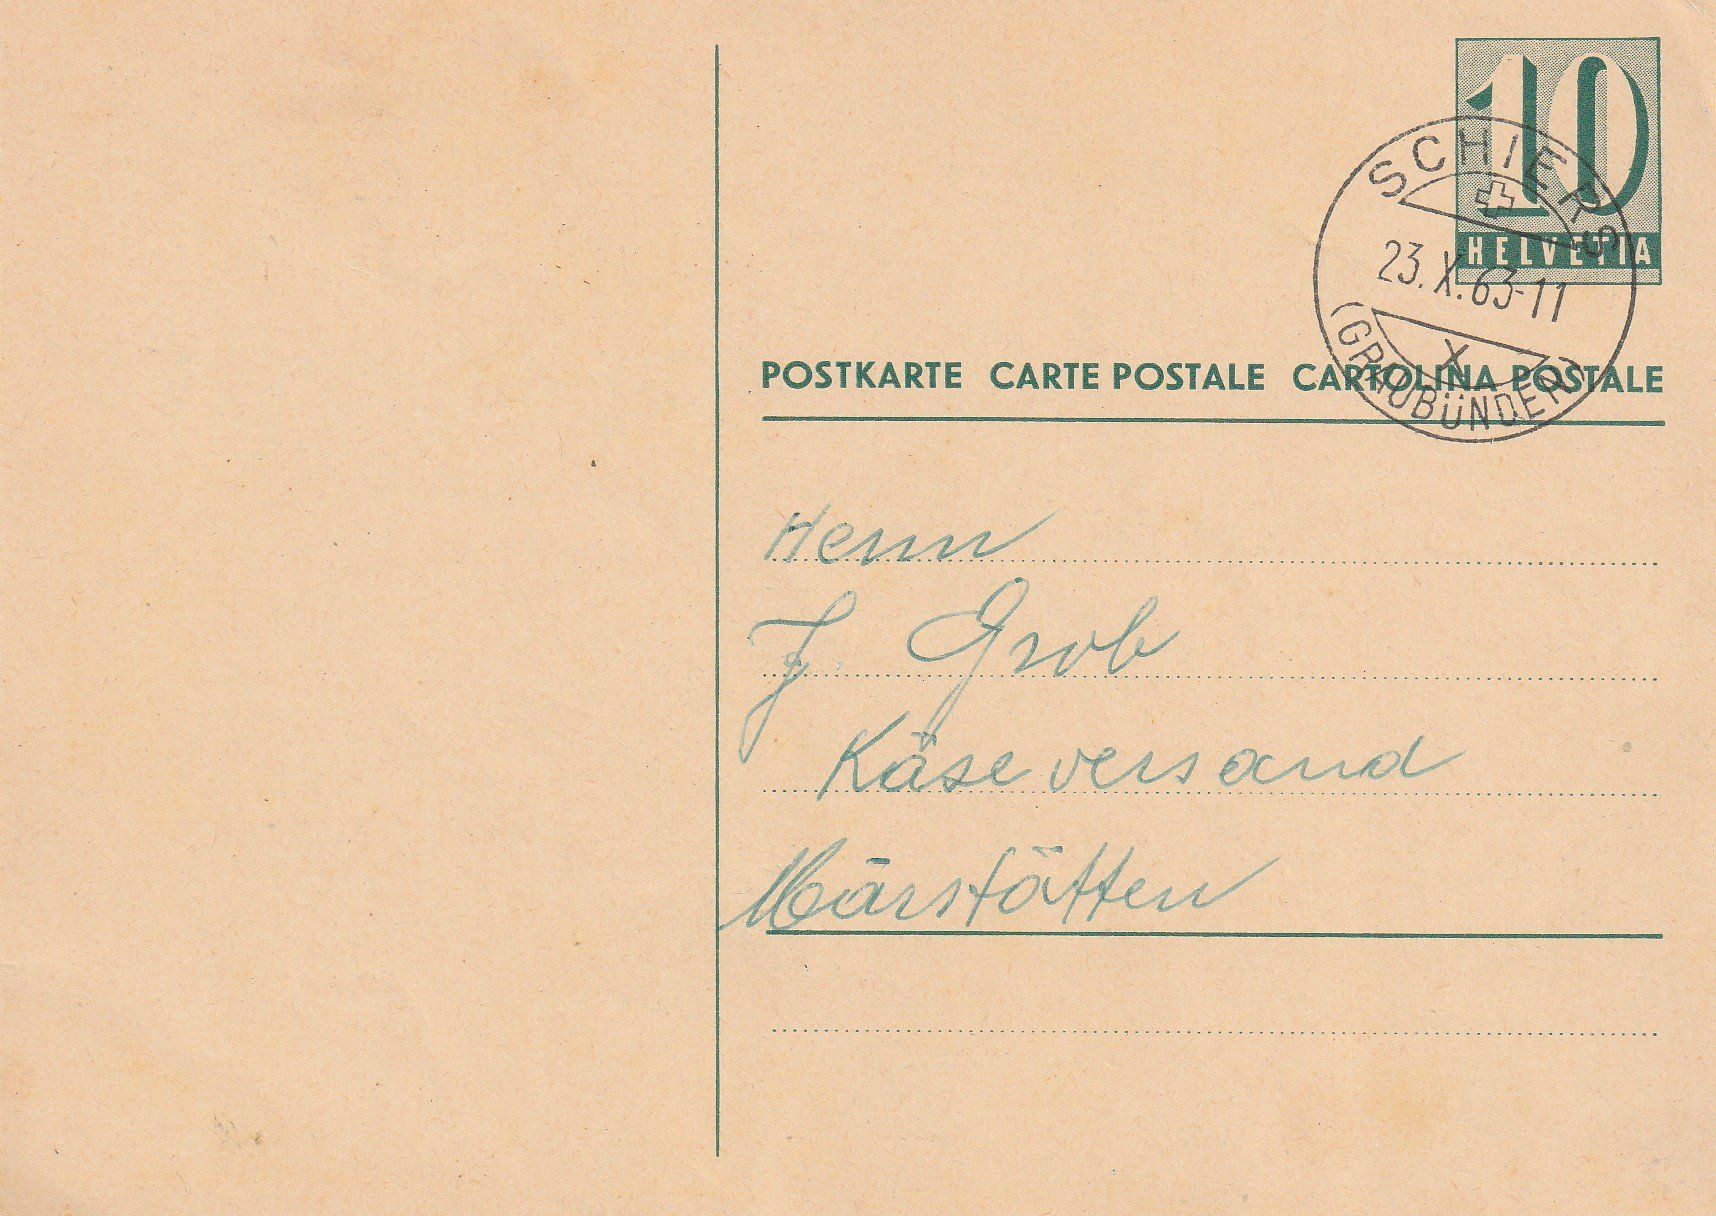 10
HELVETIA
SCHIERS
23.X.63-11
X
(GRAUBÜNDEN)
POSTKARTE CARTE POSTALE CARTOLINA POSTALE
Herrn
J. Grob
Käseversand
Märstätten